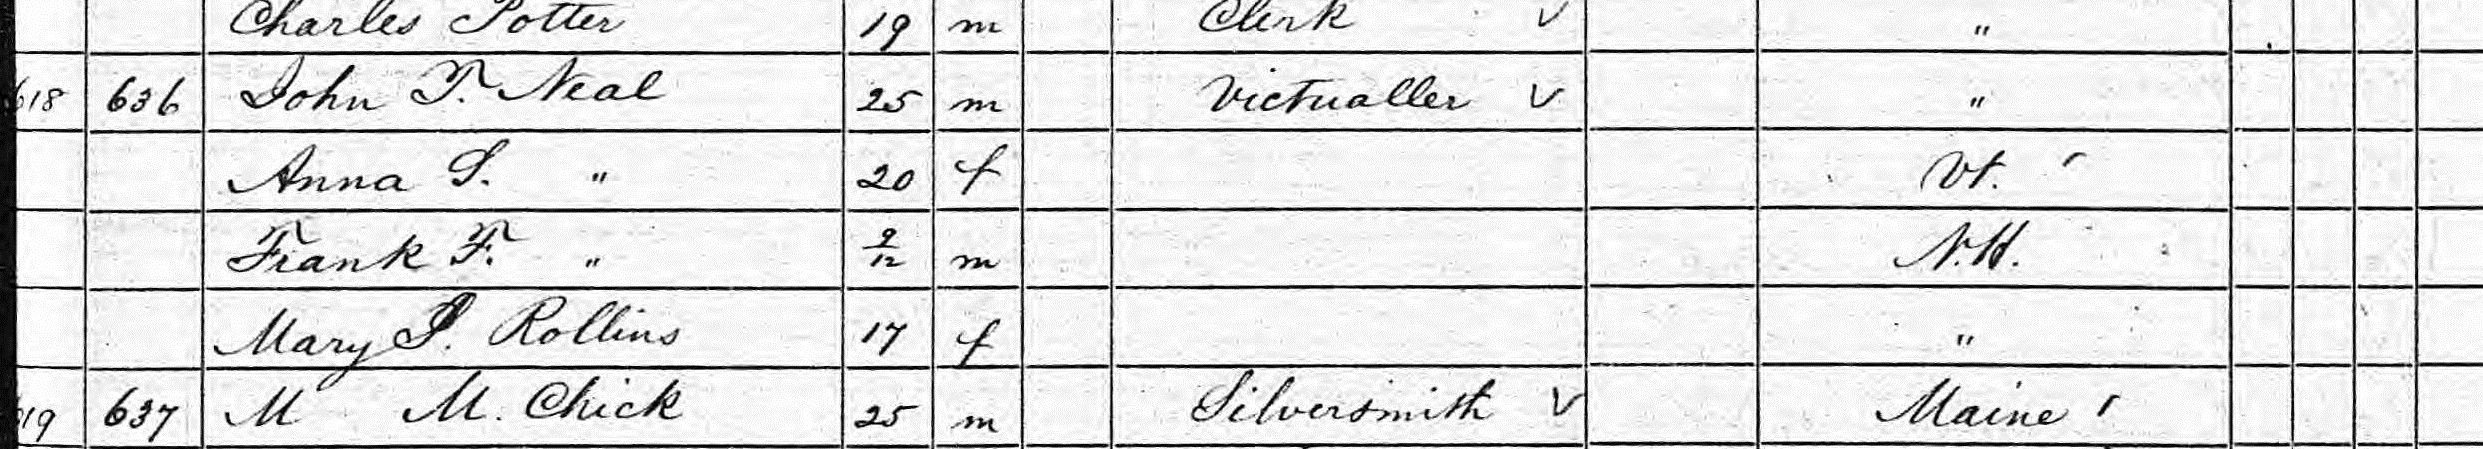 Charles Potter 19 m Clerk ✓ "
618 636 John T. Neal 25 m Victualler ✓ "
Anna S. " 20 f Vt.
Frank F. " 9/12 m N.H.
Mary P. Rollins 17 f "
619 637 M M. Chick 25 m Silversmith ✓ Maine